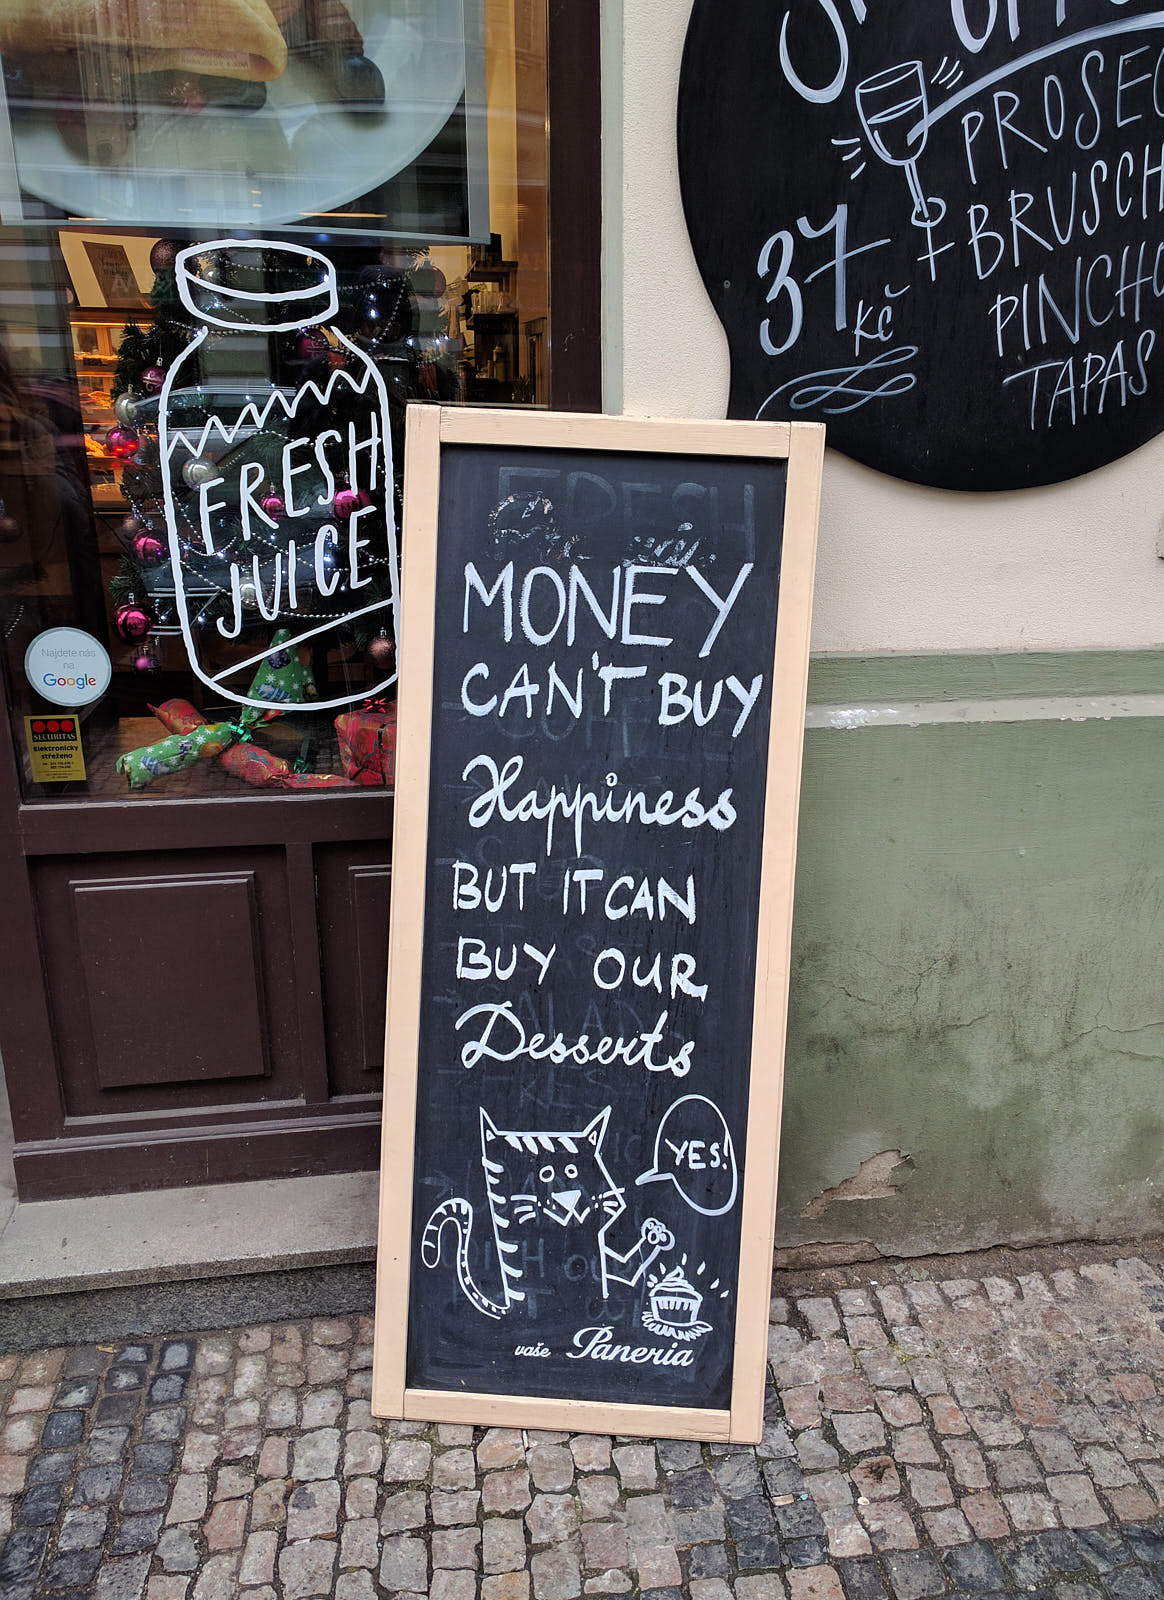 FRESH
JUICE
Najdete nás
na
Google
SECURITAS
Elektronicky
střeženo
37
Kč
+ BRUSCH
PINCHO
TAPAS
PROSEC
FRESH
MONEY
CAN'T BUY
Happiness
BUT IT CAN
BUY OUR
Desserts
YES!
vaše Paneria